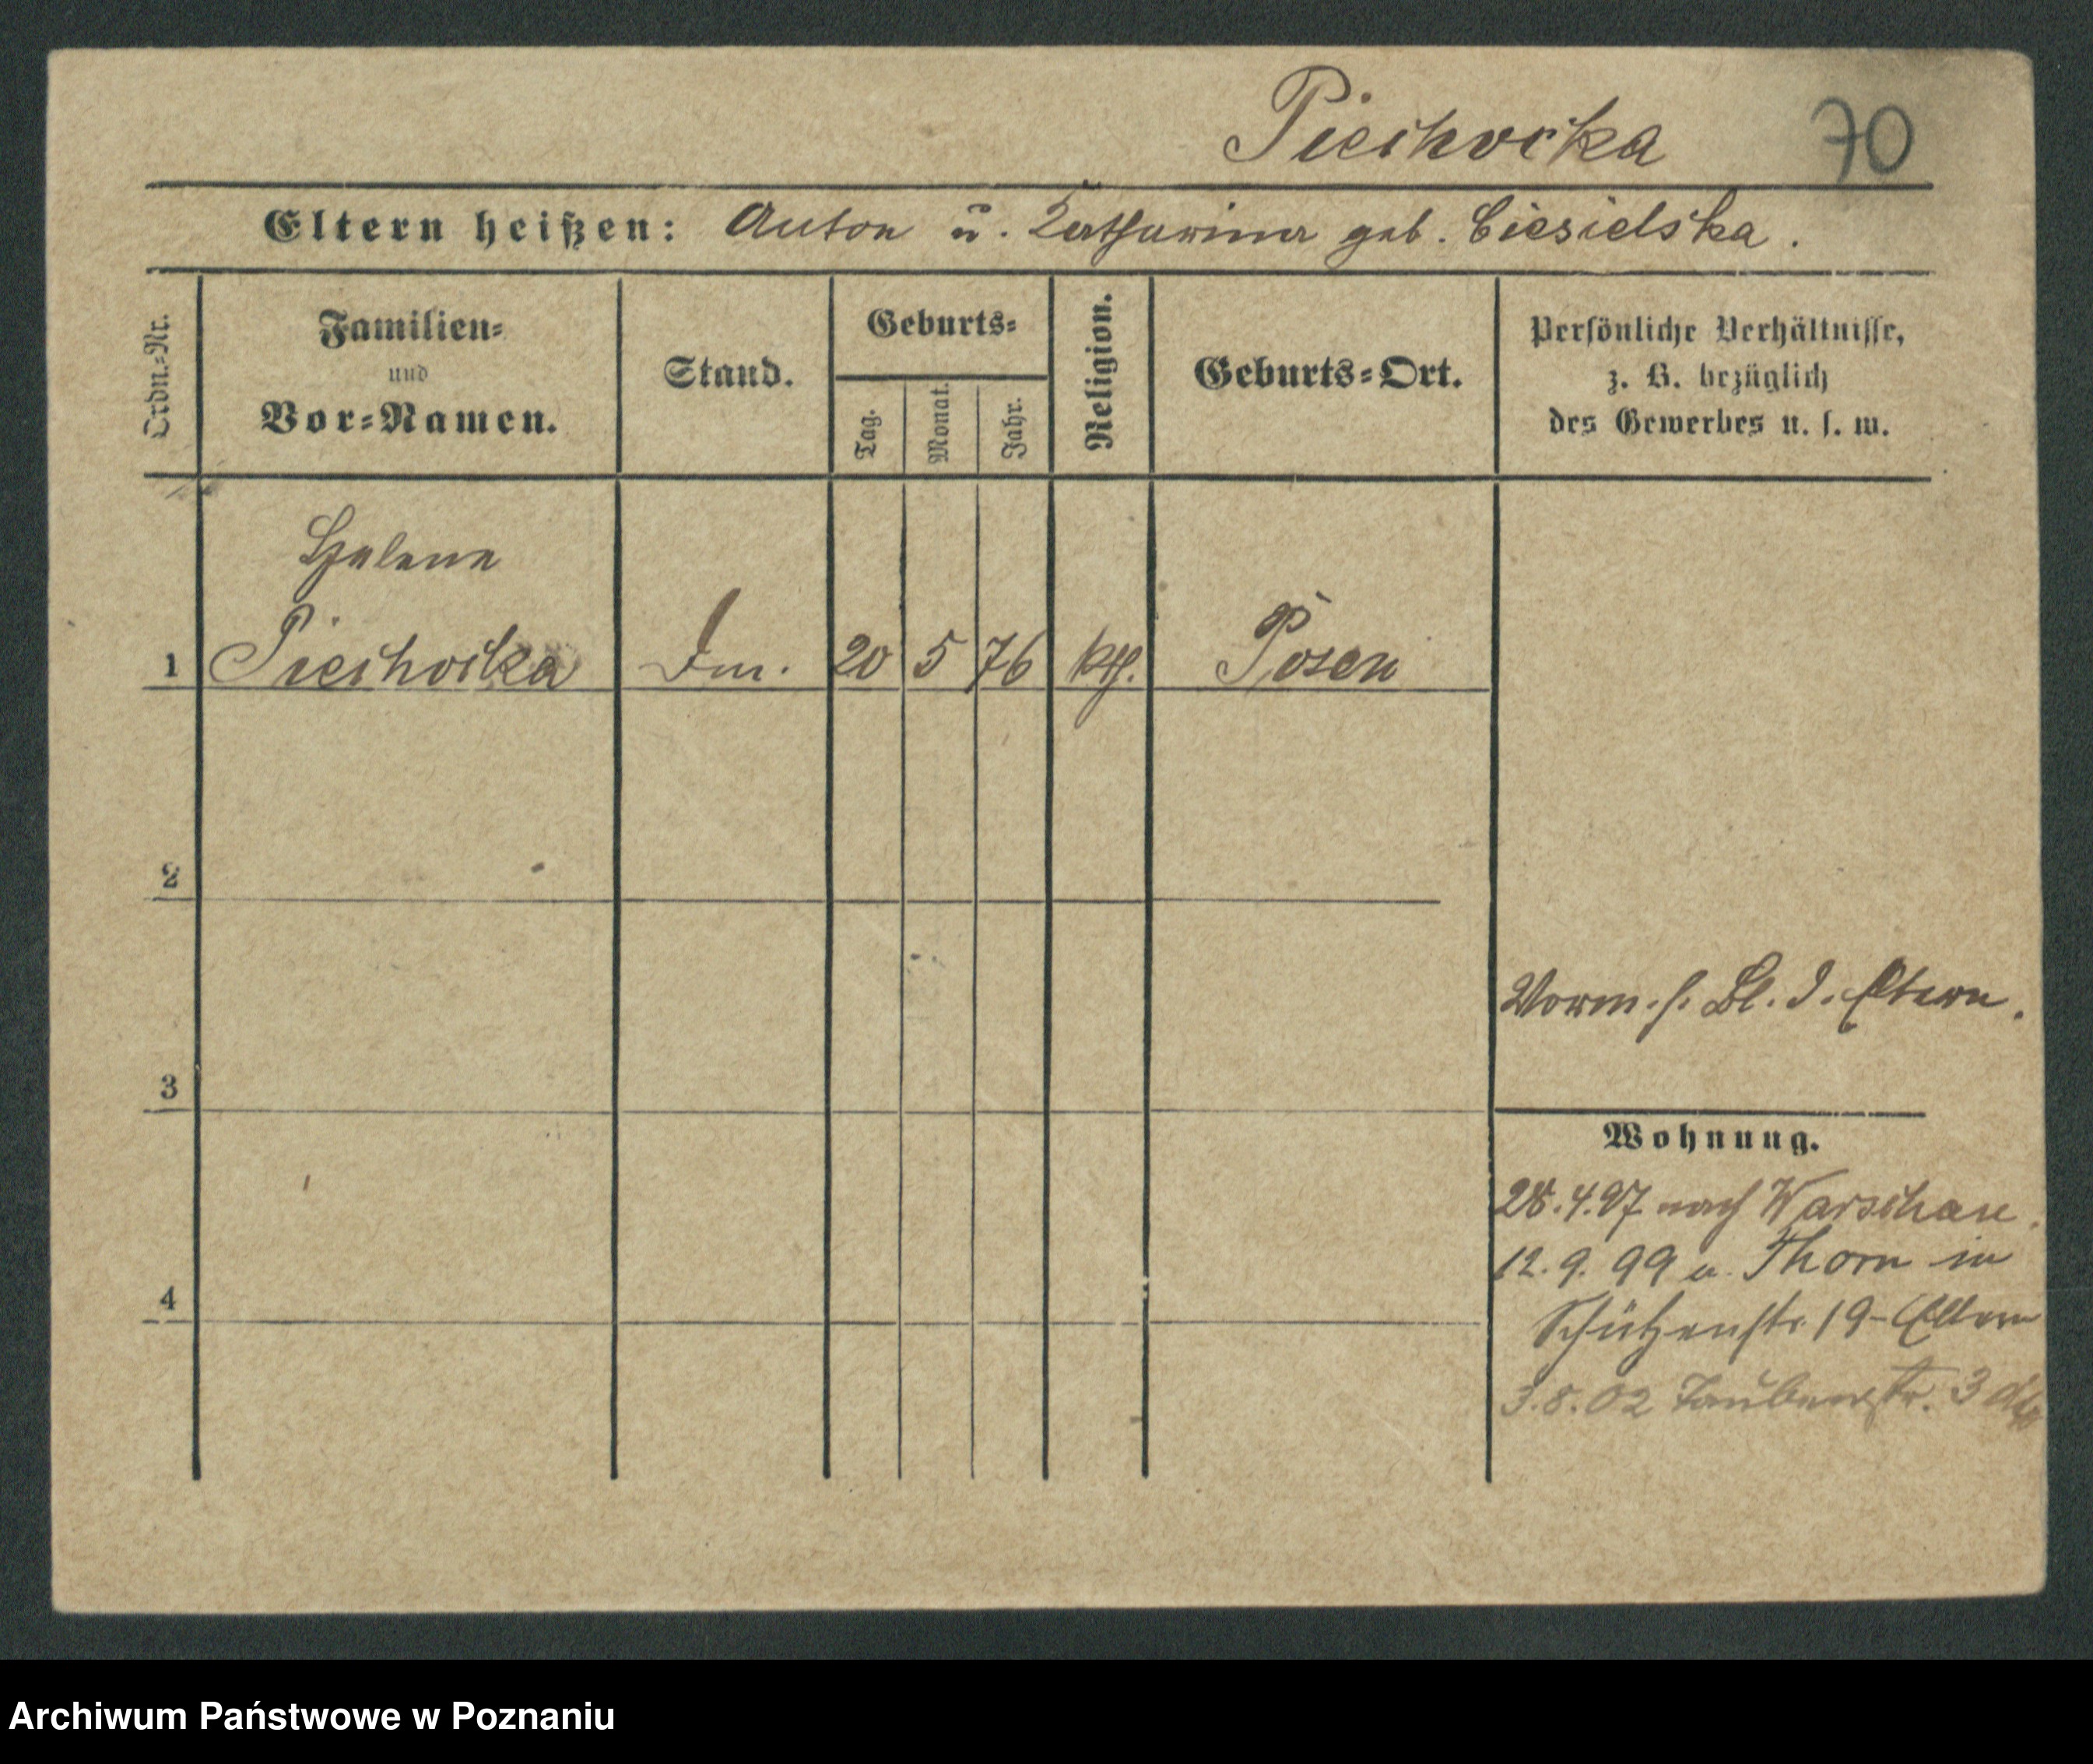 Piechocka 70
Eltern heißen: Anton u. Katharina geb. Ciesielska.
Ordn.=Nr.
Familien=
und
Vor=Namen.
Stand.
Geburts=
Tag.
Monat.
Jahr.
Religion.
Geburts=Ort.
Persönliche Verhältnisse,
z. B. bezüglich
des Gewerbes u. s. w.
Helene
1 Piechocka 20 5 76 kth. Posen
2
Vorm. s. Bl. d. Eltern.
3
Wohnung.
28.4.97 nach Warschau.
12.9.99 a. Thorn in
4
Schützenstr. 19 - Eltern
3.8.02 Taubenstr. 3
Archiwum Państwowe w Poznaniu